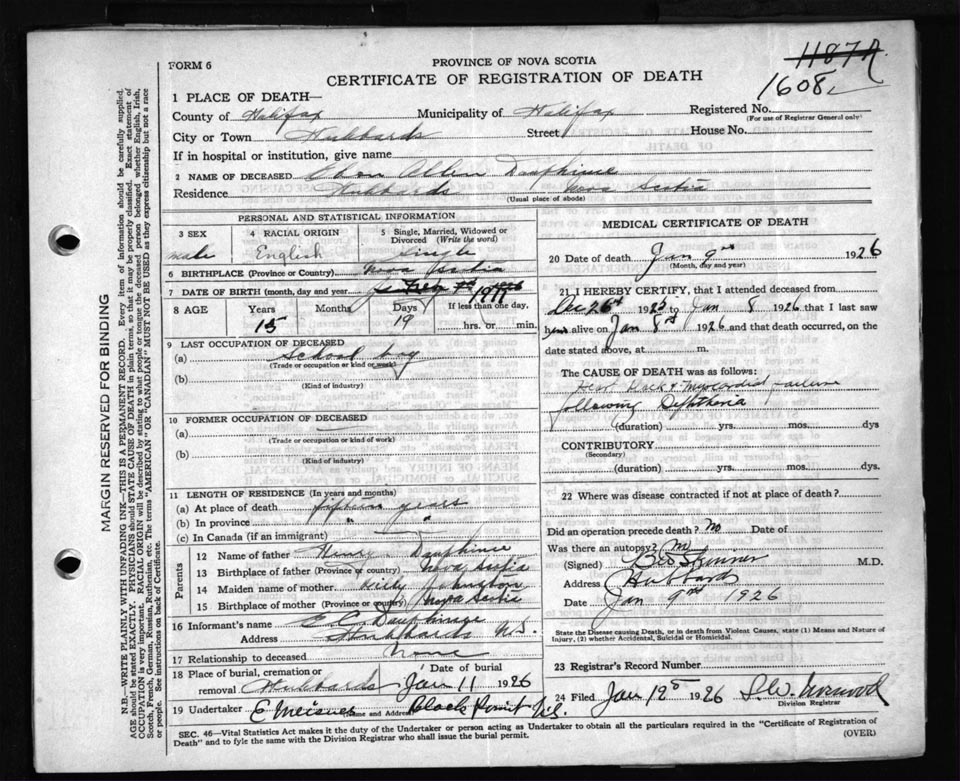 1187A
1608
FORM 6
PROVINCE OF NOVA SCOTIA
CERTIFICATE OF REGISTRATION OF DEATH
1 PLACE OF DEATH—
County of Halifax Municipality of Halifax Registered No.
(For use of Registrar General only)
City or Town Hubbards Street House No.
If in hospital or institution, give name
2 NAME OF DECEASED Allen Dauphinee
Residence Hubbards Nova Scotia
(Usual place of abode)
PERSONAL AND STATISTICAL INFORMATION
3 SEX 4 RACIAL ORIGIN 5 Single, Married, Widowed or Divorced (Write the word)
male English Single
6 BIRTHPLACE (Province or Country) Nova Scotia
7 DATE OF BIRTH (month, day and year
8 AGE Years Months Days If less than one day,
15 19 hrs. or min.
9 LAST OCCUPATION OF DECEASED
(a) School boy
(Trade or occupation or kind of work)
(b)
(Kind of industry)
10 FORMER OCCUPATION OF DECEASED
(a)
(Trade or occupation or kind of work)
(b)
(Kind of industry)
11 LENGTH OF RESIDENCE (In years and months)
(a) At place of death fifteen years
(b) In province " "
(c) In Canada (if an immigrant)
Parents
12 Name of father Henry Dauphinee
13 Birthplace of father (Province or country) Nova Scotia
14 Maiden name of mother Johnston
15 Birthplace of mother (Province or country) Nova Scotia
16 Informant's name E.C. Dauphinee
Address Hubbards N.S.
17 Relationship to deceased None
18 Place of burial, cremation or removal Hubbards Date of burial Jan 11 1926
19 Undertaker E Meisner (Name and Address) Black Point N.S.
MEDICAL CERTIFICATE OF DEATH
20 Date of death Jan 9th 1926
(Month, day and year)
21 I HEREBY CERTIFY, that I attended deceased from
Dec 26th 1925 to Jan 8 1926 that I last saw
him alive on Jan 8th 1926 and that death occurred, on the
date stated above, at m.
The CAUSE OF DEATH was as follows:
Heart block & Myocardial failure
following Diphtheria
(duration) yrs. mos. dys
CONTRIBUTORY
(Secondary)
(duration) yrs. mos. dys.
22 Where was disease contracted if not at place of death?
Did an operation precede death? No Date of
Was there an autopsy? No
(Signed) Skinner M.D.
Address Hubbards
Date Jan 9th 1926
State the Disease causing Death, or in death from Violent Causes, state (1) Means and Nature of
Injury, (2) whether Accidental, Suicidal or Homicidal.
23 Registrar's Record Number
24 Filed Jan 12th 1926
Division Registrar
SEC. 46—Vital Statistics Act makes it the duty of the Undertaker or person acting as Undertaker to obtain all the particulars required in the "Certificate of Registration of
Death" and to fyle the same with the Division Registrar who shall issue the burial permit. (OVER)
MARGIN RESERVED FOR BINDING
N.B.—WRITE PLAINLY WITH UNFADING INK—THIS IS A PERMANENT RECORD. Every item of information should be carefully supplied.
AGE should be stated EXACTLY. PHYSICIANS should STATE CAUSE OF DEATH in plain terms, so that it may be properly classified. Exact statement of
OCCUPATION is very important. RACIAL ORIGIN will be described by stating to what people or tongue the deceased person belonged whether English, Irish,
Scotch, French, German, Russian, Ruthenian, etc. The terms "AMERICAN" OR "CANADIAN" MUST NOT BE USED as they express citizenship but not a race
or people. See instructions on back of Certificate.